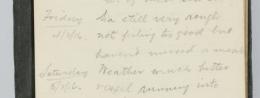 Friday Sea still very rough
4/2/16. not feeling too good but
haven't missed a meal
Saturday Weather much better
5/2/16. vessel running into